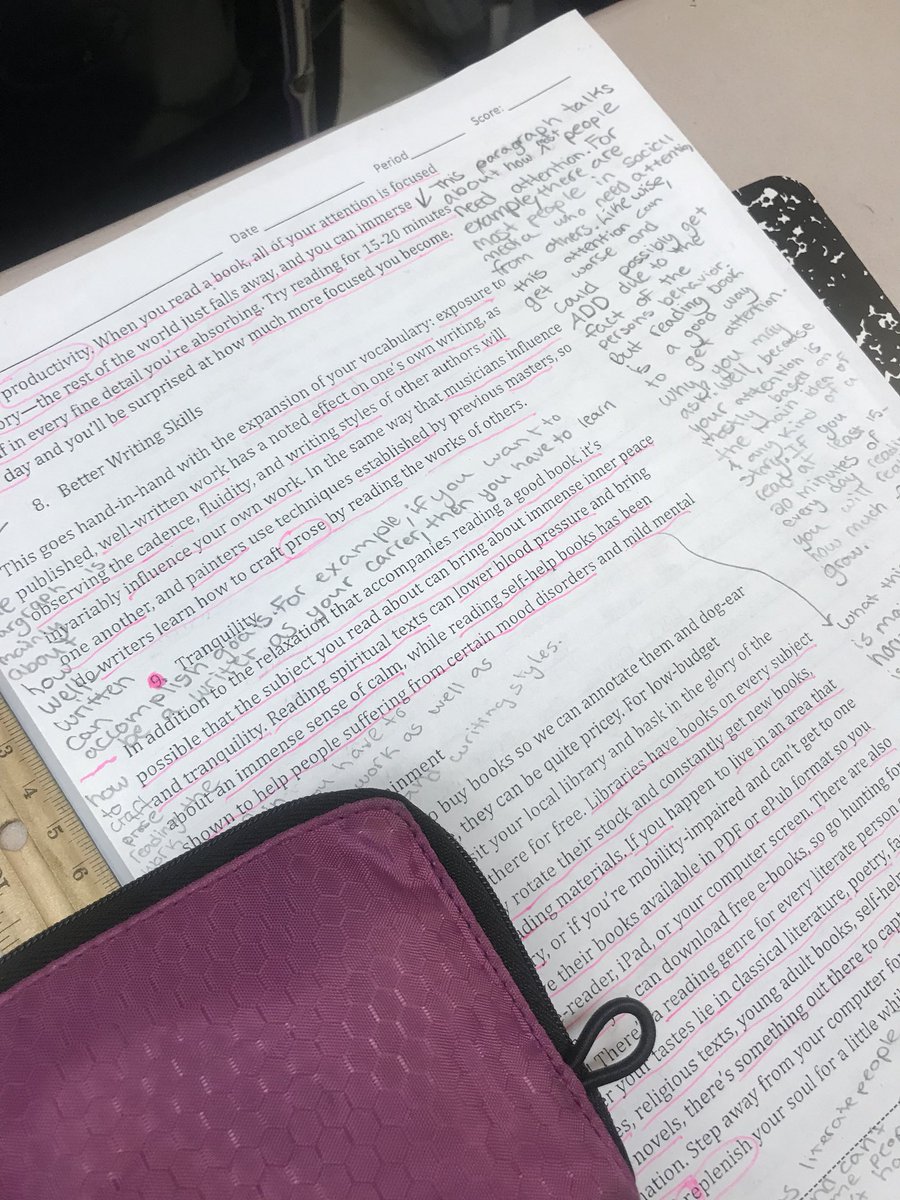 Date
Period
Score:
productivity. When you read a book, all of your attention is focused
ory—the rest of the world just falls away, and you can immerse
f in every fine detail you're absorbing. Try reading for 15-20 minutes
day and you'll be surprised at how much more focused you become.
8. Better Writing Skills
This goes hand-in-hand with the expansion of your vocabulary: exposure to
published, well-written work has a noted effect on one's own writing, as
observing the cadence, fluidity, and writing styles of other authors will
invariably influence your own work. In the same way that musicians influence
one another, and painters use techniques established by previous masters, so
do writers learn how to craft prose by reading the works of others.
9. Tranquility
In addition to the relaxation that accompanies reading a good book, it's
possible that the subject you read about can bring about immense inner peace
and tranquility. Reading spiritual texts can lower blood pressure and bring
about an immense sense of calm, while reading self-help books has been
shown to help people suffering from certain mood disorders and mild mental
inment
buy books so we can annotate them and dog-ear
they can be quite pricey. For low-budget
it your local library and bask in the glory of the
there for free. Libraries have books on every subject
rotate their stock and constantly get new books,
ding materials. If you happen to live in an area that
ry, or if you're mobility-impaired and can't get to one
e their books available in PDF or ePub format so you
-reader, iPad, or your computer screen. There are also
can download free e-books, so go hunting fo
There's a reading genre for every literate person
er your tastes lie in classical literature, poetry, fa
es, religious texts, young adult books, self-hel
novels, there's something out there to cap
nation. Step away from your computer fo
replenish your soul for a little whi
This paragraph talks
about how people
need attention. For
example, there are
most people in Sociall
media who need attention
from others. Likewise,
this attention can
get worse and
Could possibly get
ADD due to the
fact of the
persons behavior
but reading book
is a good way
to get attention.
Why, you may
ask? Well, because
your attention is
Mostly based on
the main idea of
any kind of a
thing. If you
read at least
20 minutes of
every day
you will
how much
grow.
what thi
is ma
written
can
accomplish goals. For example, if you want to
be a writer as your carrer, then you have to learn
how
to
craft
you have to
work as well as
writing styles.
literate people